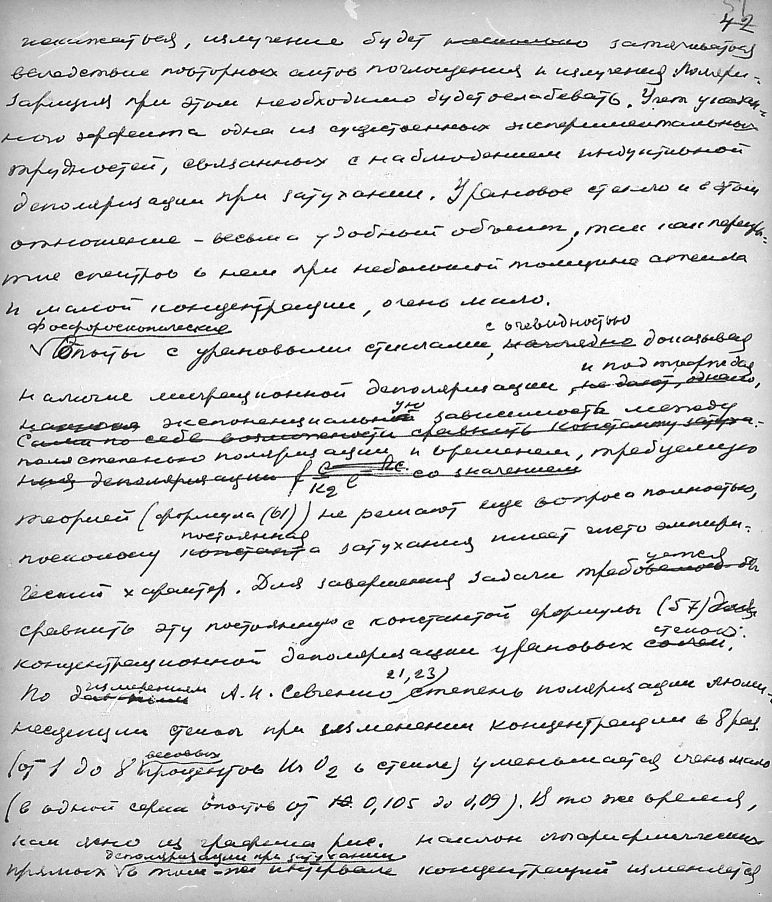 42
понижаться, излучение будет несколько затягиваться
вследствие повторных актов поглощения и излучения. Поляри-
зация при этом необходимо будет ослабевать. Учет указан-
ного эффекта одна из существенных экспериментальных
трудностей, связанных с наблюдением индуктивной
деполяризации при затухании. Урановое стекло и в этом
отношение - весьма удобный объект, так как перекры-
тие спектров в нем при небольшой толщине стекла
и малой концентрации, очень мало.
фосфороскопические
с очевидностью
Опыты с урановыми стеклами, наглядно доказывая
и подтверждая
наличие миграционной деполяризации, не дают, однако,
ую
экспоненциальной зависимость между
Сама по себе возможности сравнить константу затуха-
поля степенью поляризации и временем, требуемую
ния деполяризации со значением
теорией (формула (61)) не решают еще вопроса полностью,
постоянная
поскольку константа затухания имеет чисто эмпири-
ческий характер. Для завершения задачи требуется бы
сравнить эту постоянную с константой формулы (57) для
стекол.
концентрационной деполяризации урановых солей.
измерениям
21, 23)
По данным А.Н. Севченко степень поляризации люми-
несценции стекол при изменении концентрации в 8 раз
весовых
(от 1 до 8 процентов UO2 в стекле) уменьшается очень мало
(в одной серии опытов от 0,105 до 0,09). В то же время,
как ясно из графика рис. наклон логарифмических
деполяризации при затухании
прямых в том-же интервале концентраций изменяется